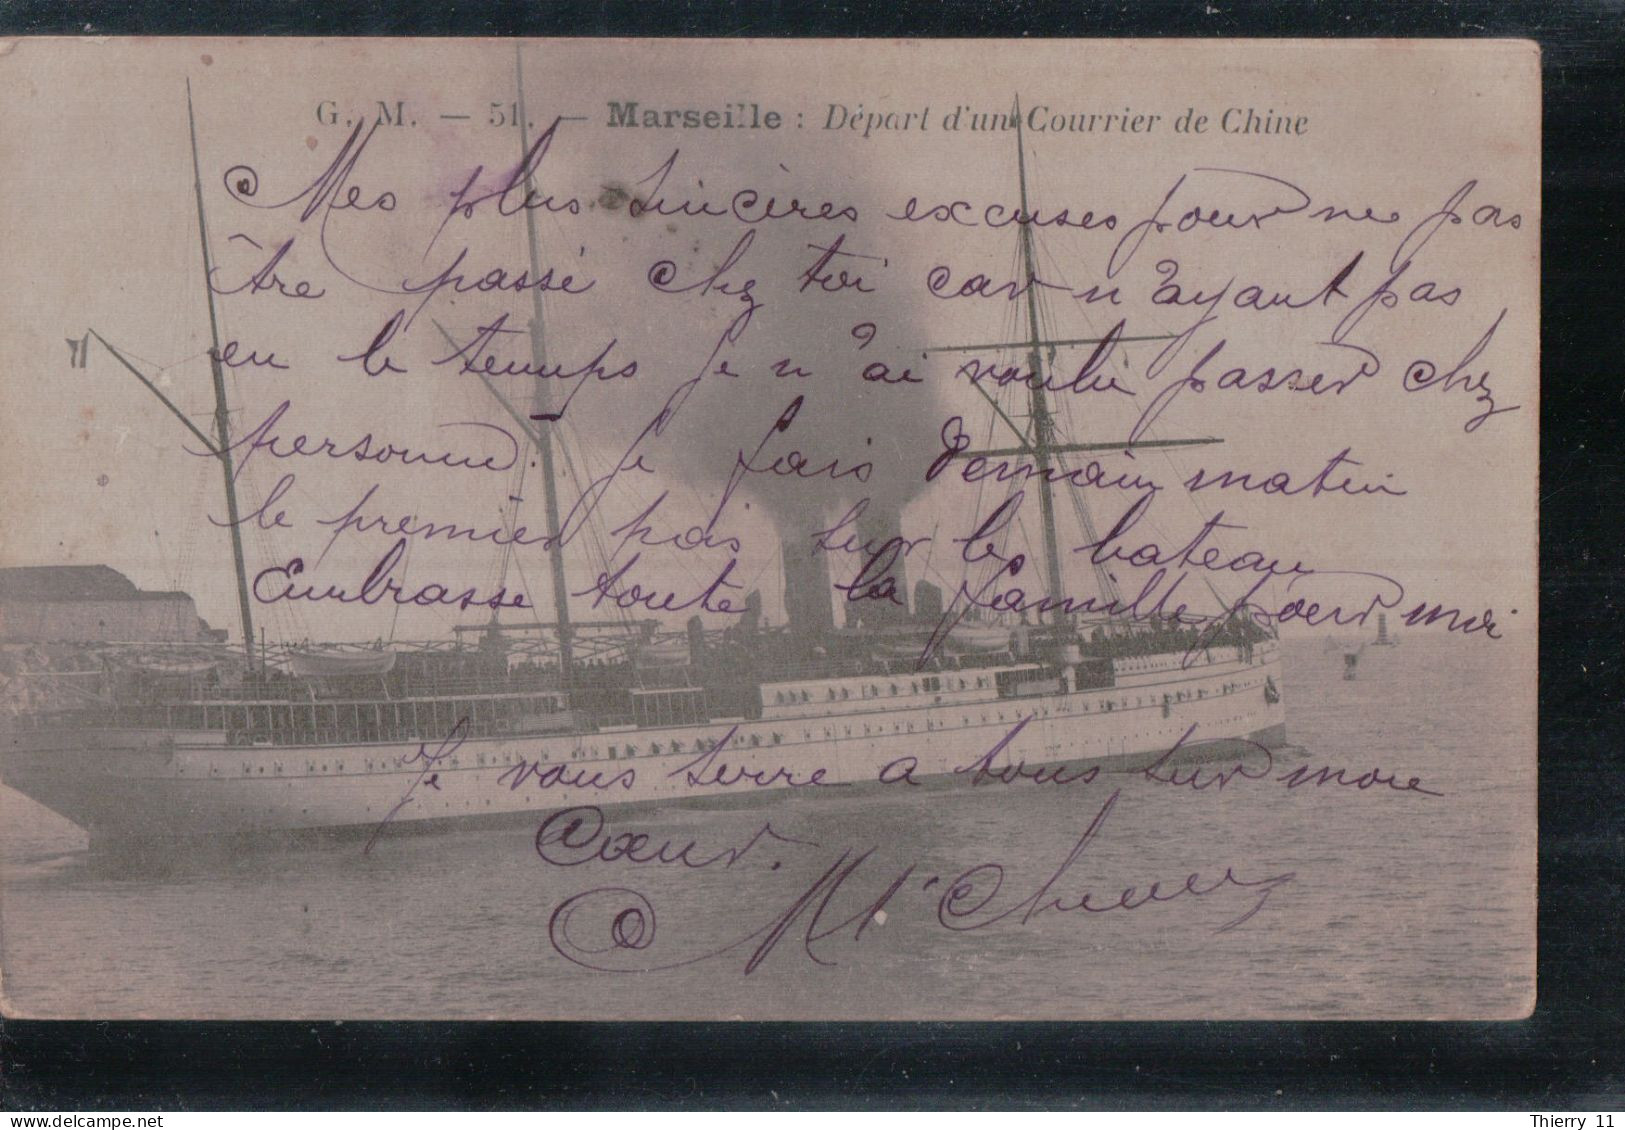 G. M. — 51. — Marseille : Départ d'un Courrier de Chine
Mes plus sincères excuses pour ne pas
être passé chez toi car n'ayant pas
eu le temps je n'ai voulu passer chez
personne. Je fais Demain matin
le premier pas sur le bateau
Embrasse toute la famille pour moi
Je vous serre a tous sur mon
Coeur.
Thierry 11